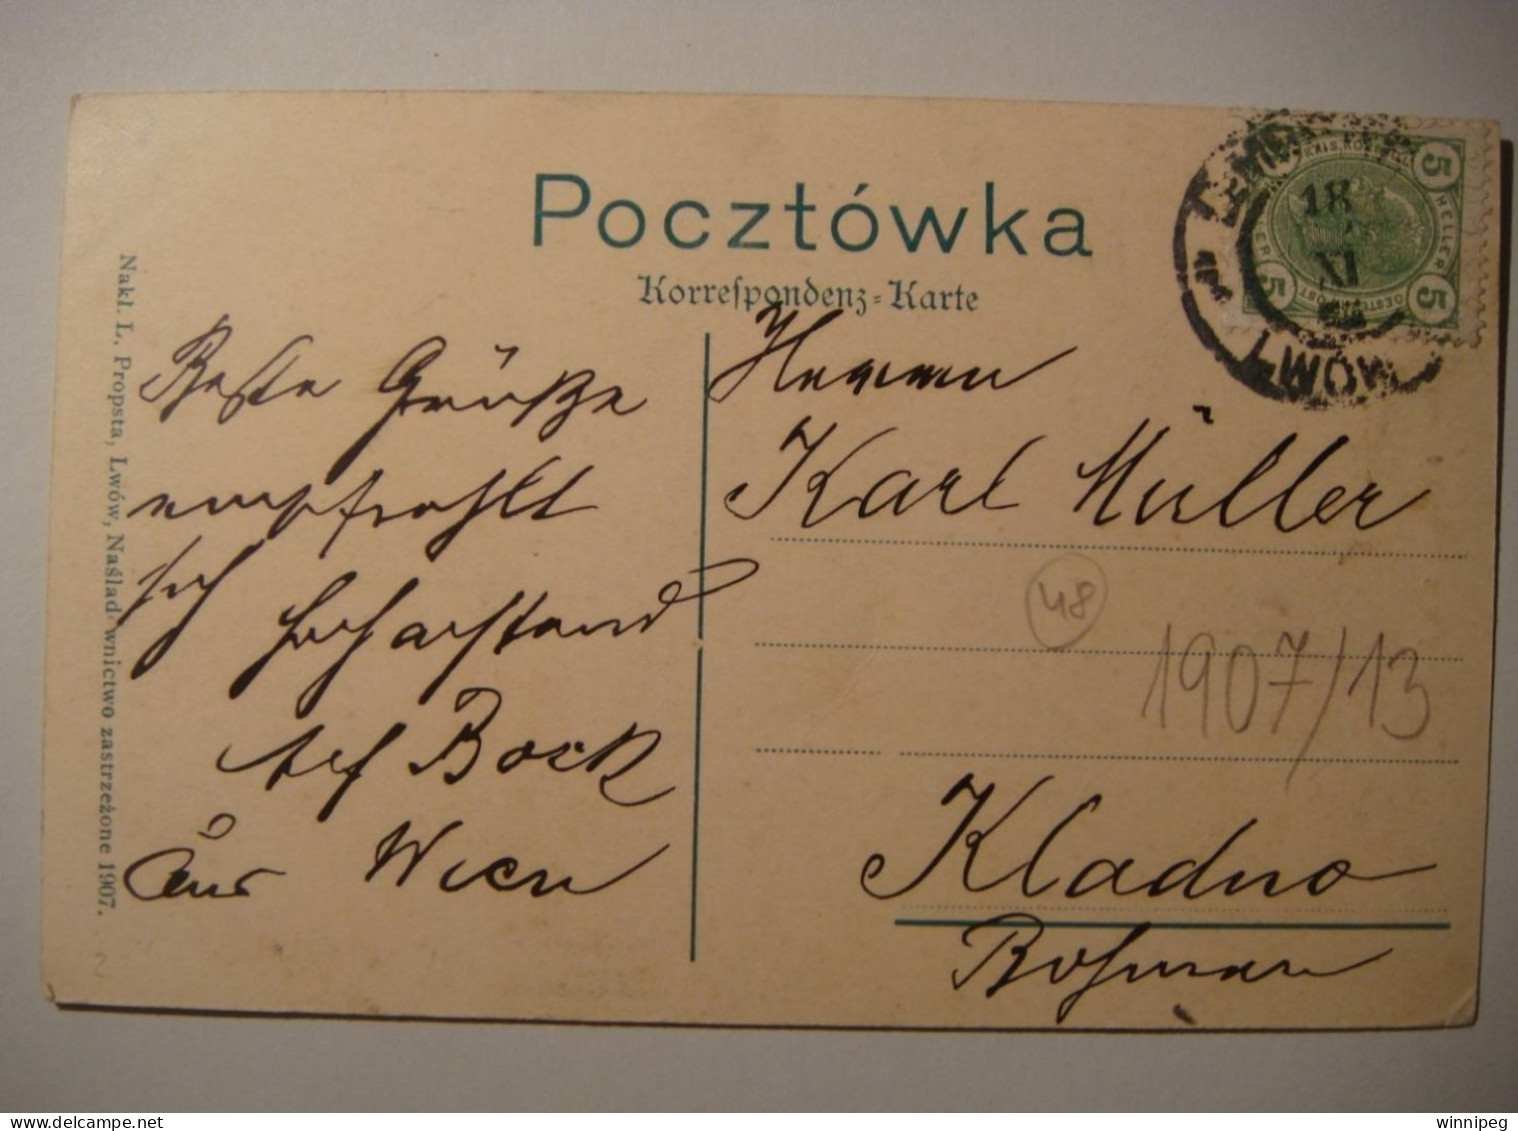 Pocztówka
Korrespondenz-Karte
Nakl. L. Propsta, Lwów, Naśladownictwo zastrzeżone 1907.
Beste Grüße
empfiehlt
sich
Bock
aus Wien
Herrn
Karl Müller
48
1907/13
Kladno
Böhmen
2
LEMBERG
18
XI
LWÓW
5
5
HELLER
5
5
winnipeg